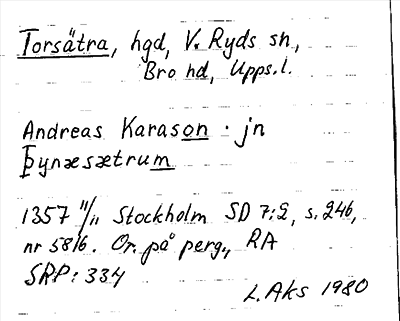 Torsätra, hgd, V. Ryds sn,
Bro hd, Upps.l.
Andreas Karason · jn
Þynæsætrum
1357 11/11 Stockholm SD 7:2, s. 246,
nr 5816. Or. på perg., RA
SRP: 334
L. Aks 1980